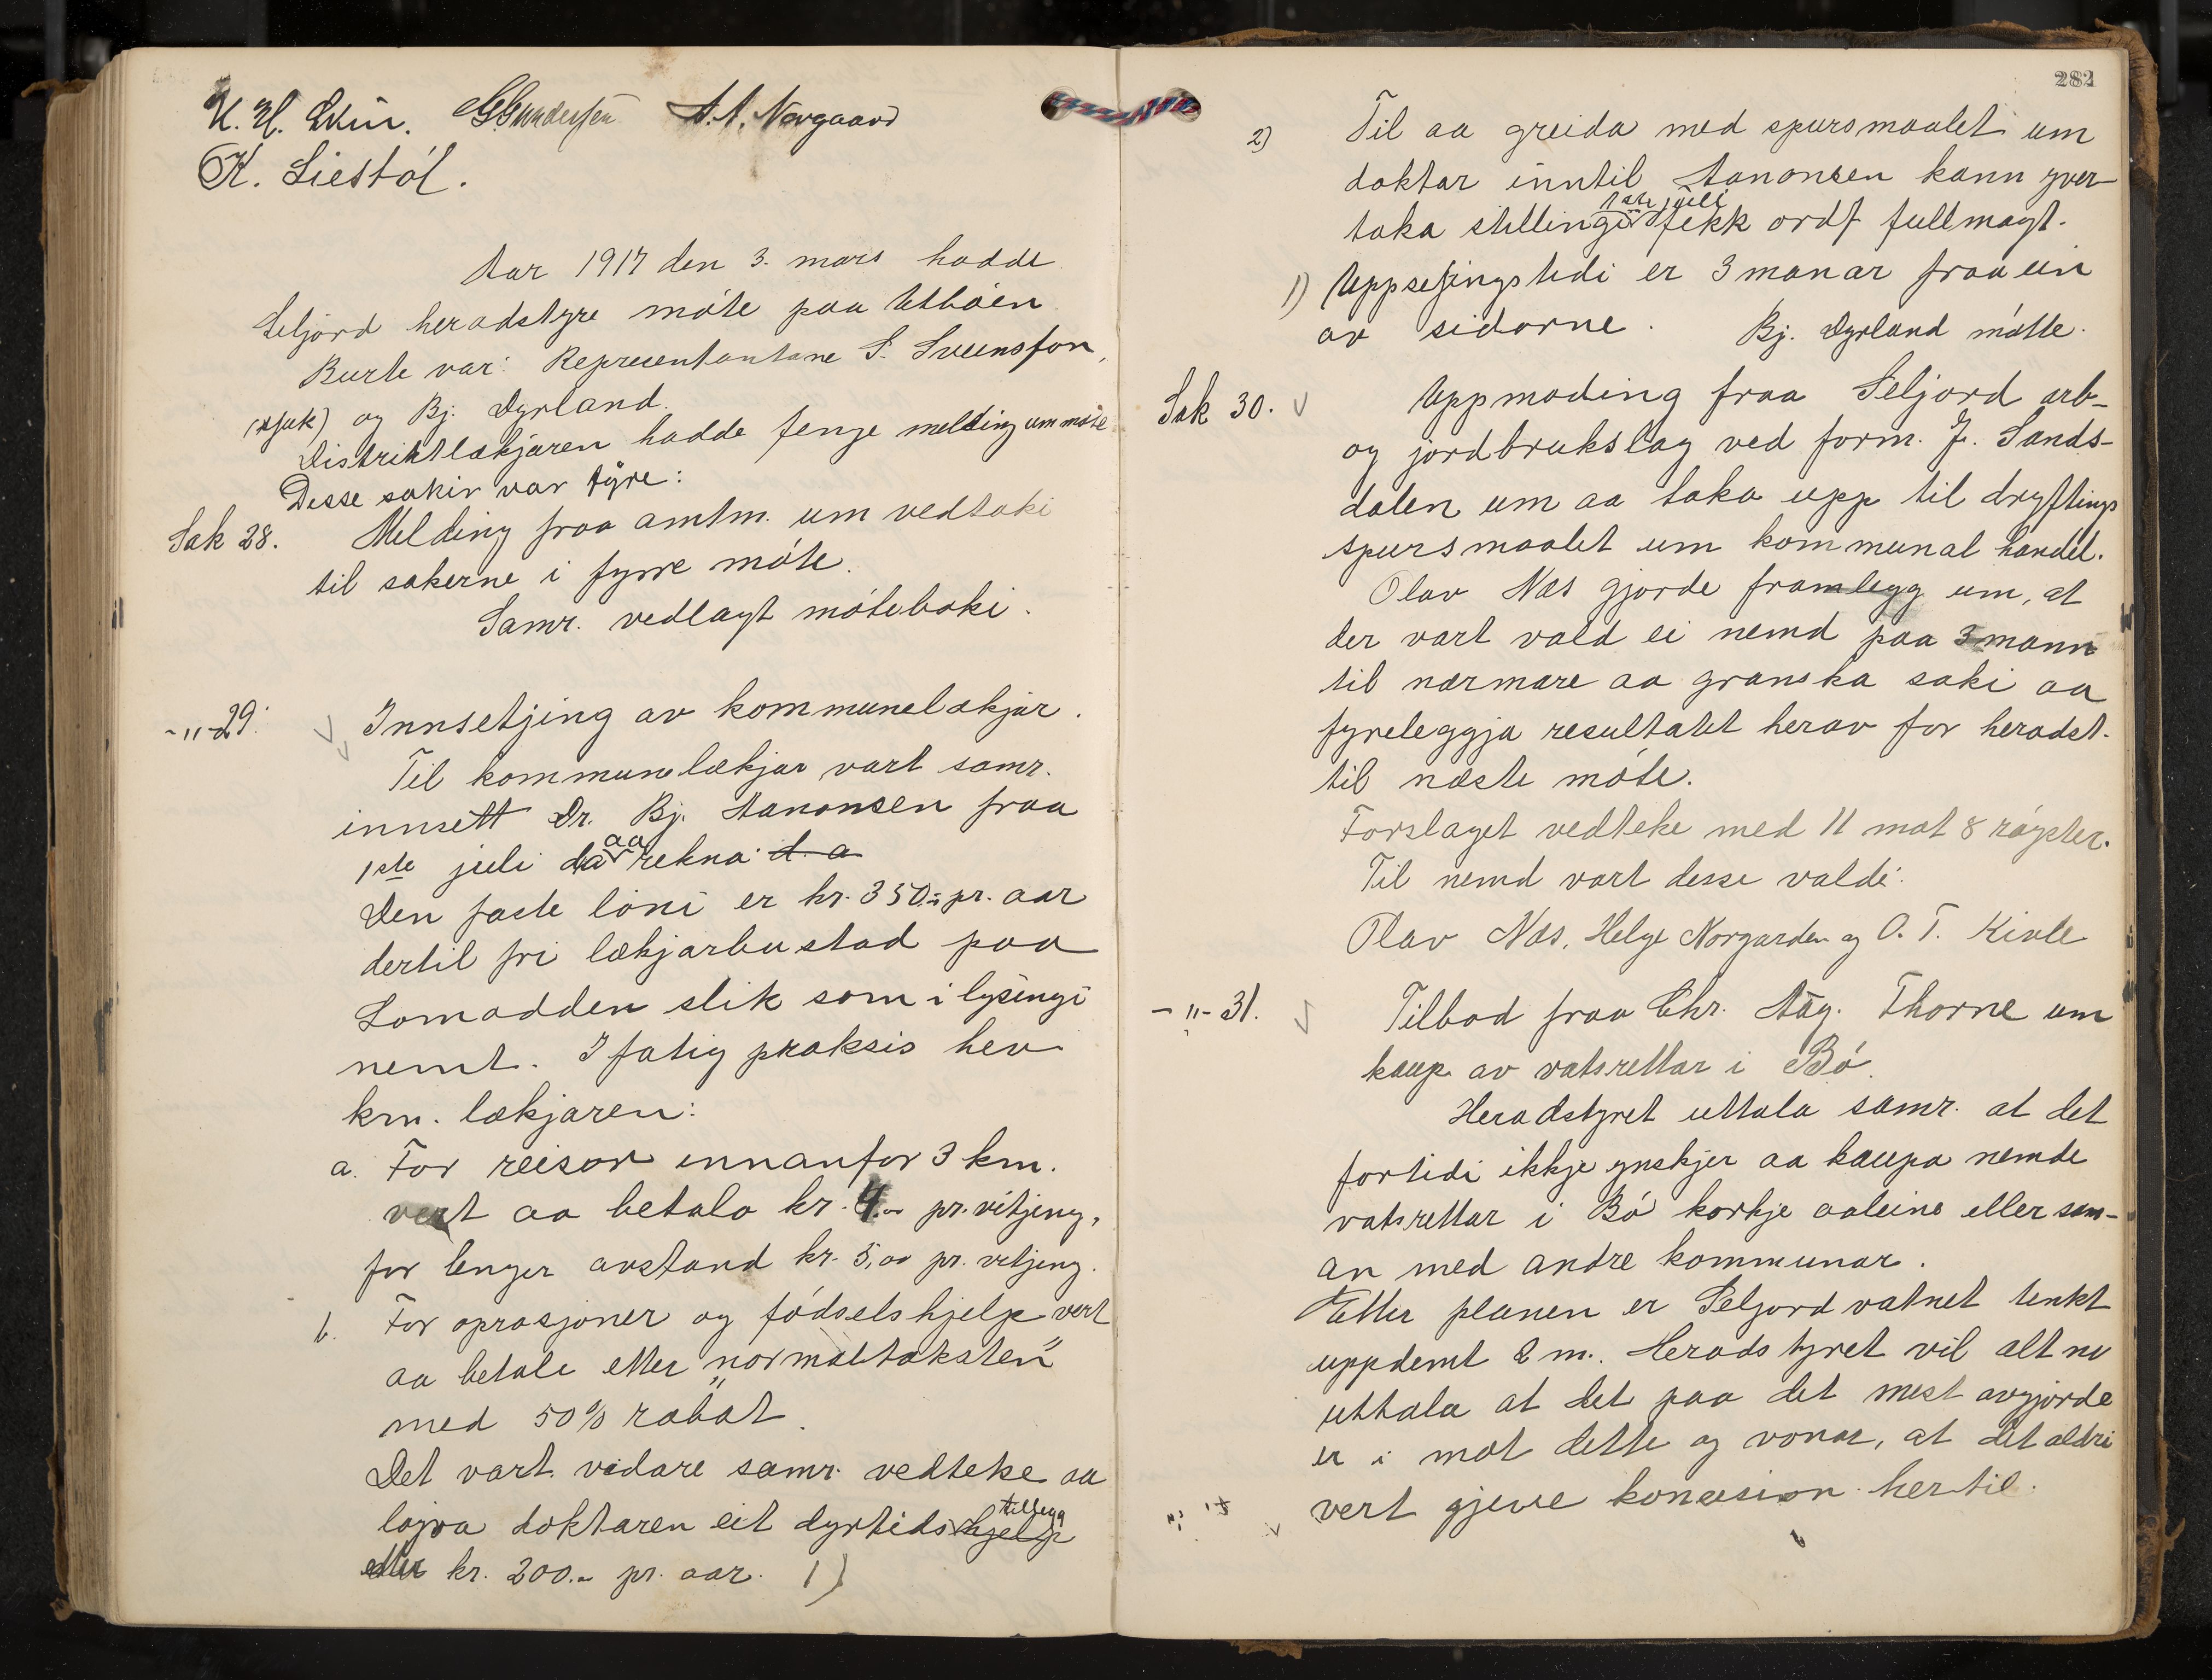 H. H. Lkin. G Gundersen A. A. Norgaard
K. Liestöl.
Aar 1917 den 3. mars hadde
Seljord heradstyre möte paa Utböen
Burte var: Representantane S. Sveinsson,
(sjuk) og Bj. Dyrland.
Distriktlækjaren hadde fenge melding um möte
Desse sakir var fyre:
Sak 28. Melding fraa amtm. um vedtaki
til sakerne i fyrre möte.
Samr. vedlagt möteboki.
-"- 29. Innsetjing av kommunelækjar.
Til kommunelækjar vart samr.
innsett Dr. Bj. Aanonsen fraa
aa
1ste juli da rekna d. a
Den faste löni er kr. 350.- pr. aar
dertil fri lækjarbustad paa
Lomodden slik som i lysingi
nemt. I fatig praksis hev
km. lækjaren:
a. For reisor innanfor 3 km.
vert aa betala kr. 4.00 pr. vitjing,
for lenger avstand kr. 5,00 pr. vitjing.
b. For oprasjoner og födselshjelp vert
aa betale etter "normaltaksten"
med 50% rabat.
Det vart vidare samr. vedteke aa
tillegg
løyva doktaren eit dyrtidshjelp
eller kr. 200.- pr. aar. 1)
282
2) Til aa greida med spursmaalet um
doktar inntil Aanonsen kann yver-
1ste juli
taka stillingi fekk ordf fullmagt.
1) Uppsejingstidi er 3 manar fraa ein
av sidorne. Bj. Dyrland mötte.
Sak 30. Uppmoding fraa Seljord arb-
og jordbrukslag ved form. J. Sands-
dalen um aa taka upp til dryftings
spursmaalet um kommunal handel.
Olav Næs gjorde framlegg um, at
der vart vald ei nemd paa 3 mann
til nærmare aa granska saki aa
fyreleggja resultatet herav for heradst.
til næste möte.
Forslaget vedteke med 11 mot 8 röyster.
Til nemd vart desse valde:
Olav Næs, Helge Norgarden og O. T. Kivle
-"- 31. Tilbod fraa Chr. Aug. Thorne um
kaup av vatsrettar i Bö.
Heradstyret uttala samr. at det
fortidi ikkje ynskjer aa kaupa nemde
vatsrettar i Bö korkje aaleine eller sam-
an med andre kommunar.
Etter planen er Seljordvatnet tenkt
uppdemt 2 m. Heradstyret vil alt no
uttala at det paa det mest avgjorde
er i mot dette og vonar, at det aldri
vert gjeve koncesion hertil.